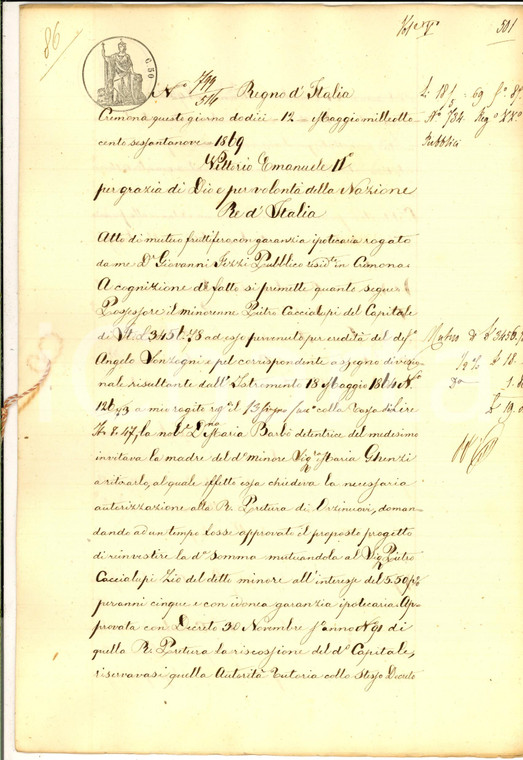 86
501
C. 50
N.° 799
516
Regno d'Italia
Cremona questo giorno dodici - 12 - Maggio milleotto
cento sessantanove - 1869
Vittorio Emanuele II°
per grazia di Dio e per volontà della Nazione
Re d'Italia
Atto di mutuo fruttifero con garanzia ipotecaria rogato
da me D.r Giovanni Fezzi Pubblico resid.te in Cremona.
A cognizione di fatto si premette quanto segue:
Possessore il minorenne Pietro Caccialupi del Capitale
di It. L. 3456:78 ad esso pervenuto per eredità del def.°
Angelo Vonzogni e pel corrispondente assegno divisio-
nale risultante dall'Istromento 18 Maggio 1864 N.°
a mio rogito colla Tassa di Lire
It. 8.47, la nob. D.na Maria Barbò detentrice del medesimo
invitava la madre del d.° minore Sig.ra Maria Ghenzi
a ritirarlo, al quale effetto essa chiedeva la necessaria
autorizzazione alla R. Pretura di Orzinuovi, doman-
dando ad un tempo fosse approvato il proposto progetto
di reinvestire la d.a somma mutuandola al Sig. Pietro
Caccialupi Zio del detto minore all'interesse del 5.50 p%
per anni cinque e con idonea garanzia ipotecaria. Ap-
provata con Decreto 30 Novembre anno N. 91 di
quella R. Pretura la riscossione del d.° Capitale,
riservavasi quella Autorità tutoria collo stesso Decreto
N.° 734
Pubblici
Mutuo di £ 3456.
£ 18